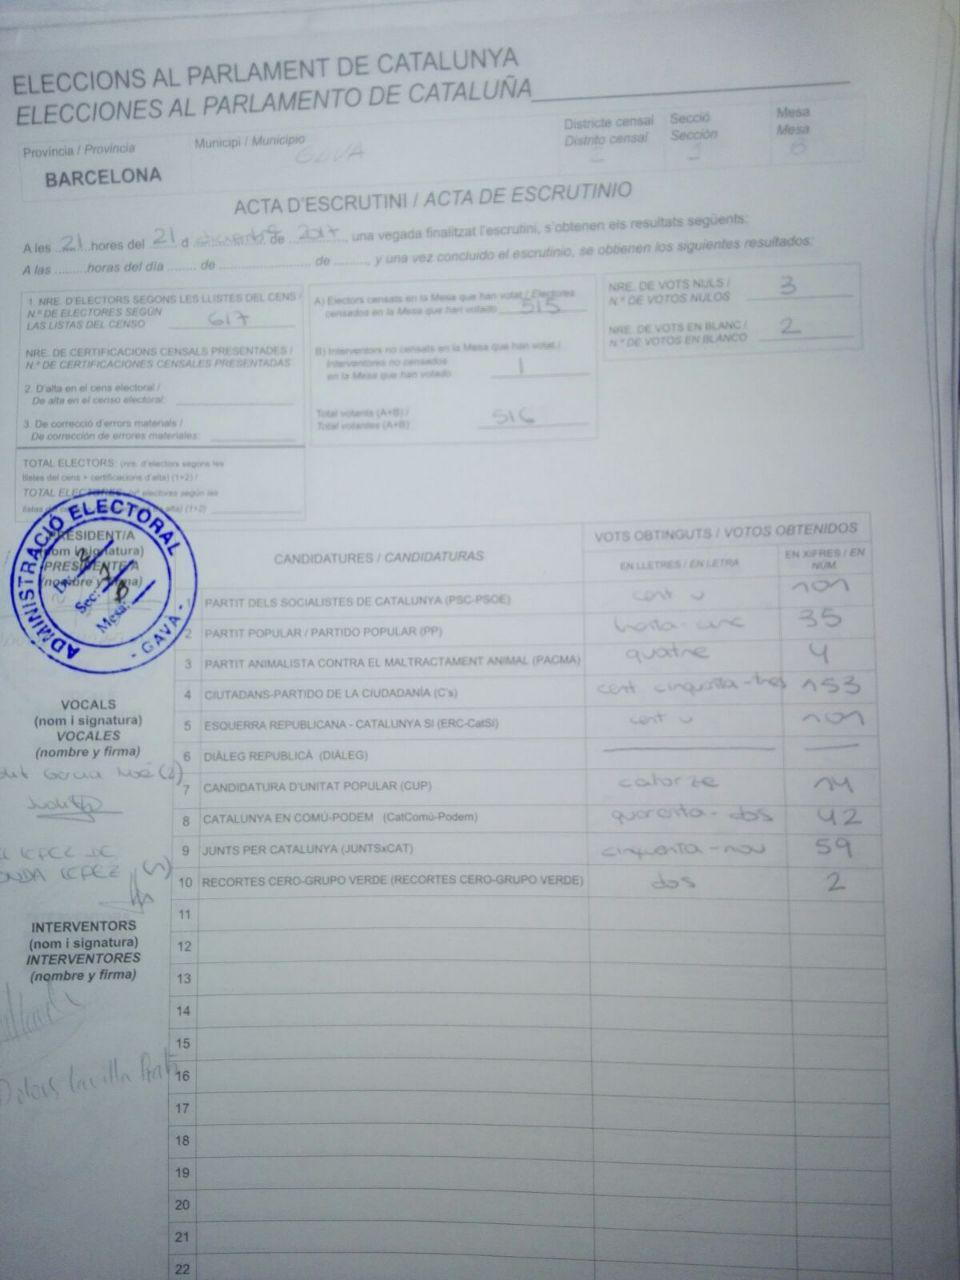 ELECCIONS AL PARLAMENT DE CATALUNYA
ELECCIONES AL PARLAMENTO DE CATALUÑA
Provincia / Provincia
BARCELONA
Municipi / Municipio
GAVA
Districte censal
Distrito censal
Secció
Sección
Mesa
Mesa
B
ACTA D'ESCRUTINI / ACTA DE ESCRUTINIO
A les 21 hores del 21 d diciembre de 2017, una vegada finalitzat l'escrutini, s'obtenen els resultats següents:
A las ......... horas del día ........ de ......................... de ........., y una vez concluido el escrutinio, se obtienen los siguientes resultados:
1. NRE. D'ELECTORS SEGONS LES LLISTES DEL CENS /
N.º DE ELECTORES SEGÚN
LAS LISTAS DEL CENSO 617
NRE. DE CERTIFICACIONS CENSALS PRESENTADES /
N.º DE CERTIFICACIONES CENSALES PRESENTADAS
2. D'alta en el cens electoral /
De alta en el censo electoral:
3. De correcció d'errors materials /
De corrección de errores materiales:
TOTAL ELECTORS: (nre. d'electors segons les
llistes del cens + certificacions d'alta) (1+2) /
TOTAL ELECTORES: (nº electores según las
listas del de alta) (1+2)
A) Electors censats en la Mesa que han votat / Electores
censados en la Mesa que han votado 515
B) Interventors no censats en la Mesa que han votat /
Interventores no censados
en la Mesa que han votado 1
Total votants (A+B) /
Total votantes (A+B) 516
NRE. DE VOTS NULS /
N.º DE VOTOS NULOS 3
NRE. DE VOTS EN BLANC /
N.º DE VOTOS EN BLANCO 2
ADMINISTRACIÓ ELECTORAL
- GAVÀ -
Dte:
Sec: 1
Mesa: B
PRESIDENT/A
(nom i signatura)
PRESIDENTE/A
(nombre y firma)
VOCALS
(nom i signatura)
VOCALES
(nombre y firma)
Judith
INTERVENTORS
(nom i signatura)
INTERVENTORES
(nombre y firma)
Dolors
CANDIDATURES / CANDIDATURAS
VOTS OBTINGUTS / VOTOS OBTENIDOS
EN LLETRES / EN LETRA
EN XIFRES / EN NÚM.
1 PARTIT DELS SOCIALISTES DE CATALUNYA (PSC-PSOE) cent u 101
2 PARTIT POPULAR / PARTIDO POPULAR (PP) 35
3 PARTIT ANIMALISTA CONTRA EL MALTRACTAMENT ANIMAL (PACMA) quatre 4
4 CIUTADANS-PARTIDO DE LA CIUDADANÍA (C's) cent cinquanta-tres 153
5 ESQUERRA REPUBLICANA - CATALUNYA SI (ERC-CatSI) cent u 101
6 DIÀLEG REPUBLICÀ (DIÀLEG)
7 CANDIDATURA D'UNITAT POPULAR (CUP) catorze 14
8 CATALUNYA EN COMÚ-PODEM (CatComú-Podem) quaranta-dos 42
9 JUNTS PER CATALUNYA (JUNTSxCAT) cinquanta-nou 59
10 RECORTES CERO-GRUPO VERDE (RECORTES CERO-GRUPO VERDE) dos 2
11
12
13
14
15
16
17
18
19
20
21
22